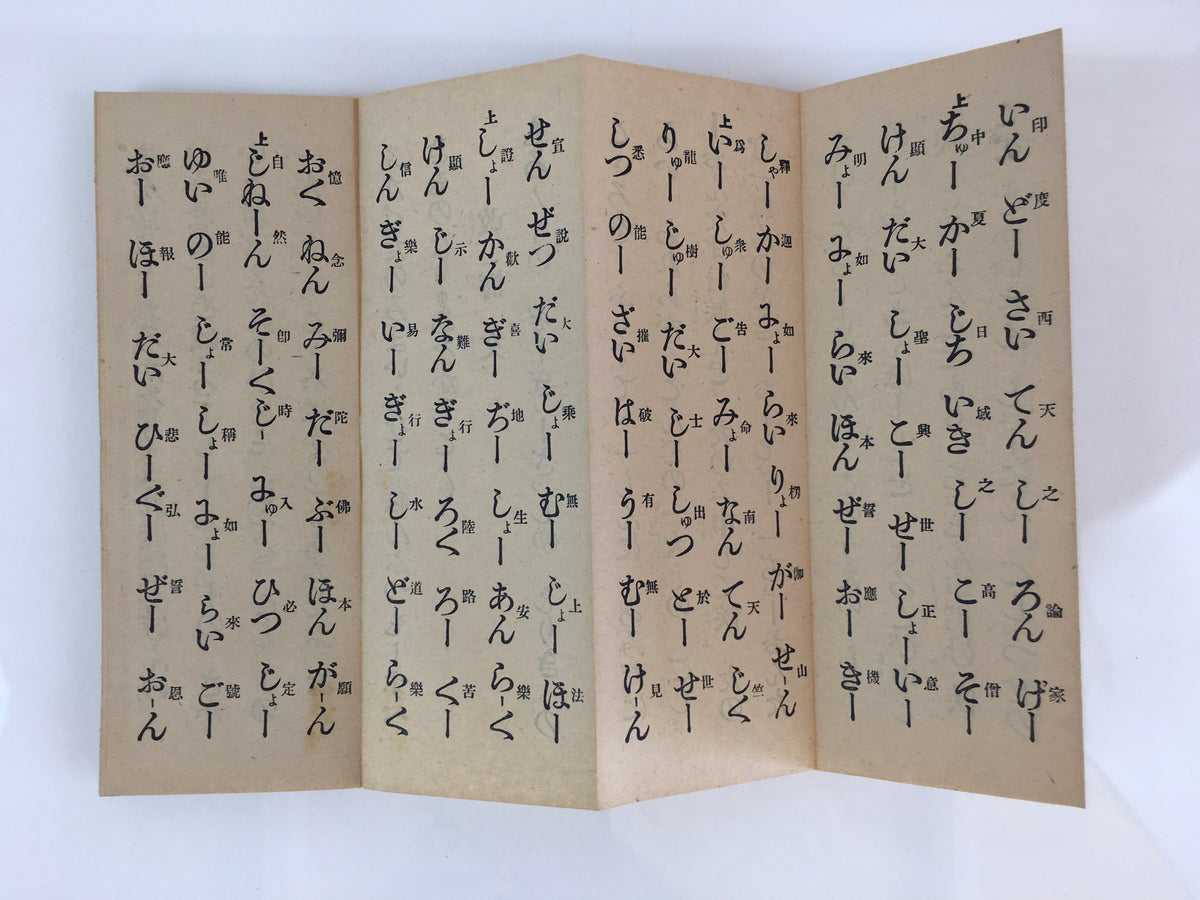 いん どー さい てん しー ろん げー
印 度 西 天 之 論 家
上 ちゅー かー じち いき しー こー そー
中 夏 日 域 之 高 僧
けん だい しょー こー せー しょー いー
顯 大 聖 興 世 正 意
みょー にょー らい ほん ぜー おー きー
明 如 來 本 誓 應 機
しゃー かー にょー らい りょー がー せーん
釋 迦 如 來 楞 伽 山
上 いー しゅー ごー みょー なん てん じく
爲 衆 告 命 南 天 竺
りゅー じゅー だい じー しゅつ とー せー
龍 樹 大 士 出 於 世
しつ のー ざい はー うー むー けーん
悉 能 摧 破 有 無 見
せん ぜつ だい じょー むー じょー ほー
宣 説 大 乘 無 上 法
上 しょー かん ぎー ぢー しょー あん らーく
證 歡 喜 地 生 安 樂
けん じー なん ぎょー ろく ろー くー
顯 示 難 行 陸 路 苦
しん ぎょー いー ぎょー しー どー らーく
信 樂 易 行 水 道 樂
おく ねん みー だー ぶー ほん がーん
憶 念 彌 陀 佛 本 願
上 じねーん そーく じー にゅー ひつ じょー
自 然 卽 時 入 必 定
ゆい のー じょー しょー にょー らい ごー
唯 能 常 稱 如 來 號
おー ほー だい ひー ぐー ぜー おーん
應 報 大 悲 弘 誓 恩